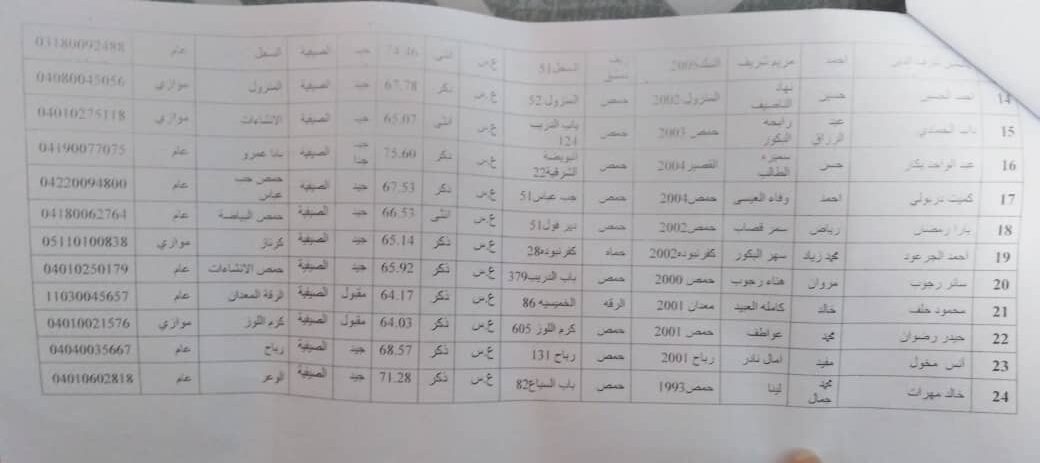 احمد مريم شريف السحل51 ع.س انثى 74.46 جيد الصيفية السحل عام 03180092488
14 احمد الحسين حسين نهاد الناصيف المنزول 2002 حمص المنزول 52 ع.س ذكر 67.78 جيد الصيفية المنزول موازي 04080045056
15 عبد الرزاق رابحه البكور حمص 2003 حمص باب التريب 124 ع.س انثى 65.07 جيد الصيفية الانشاءات موازي 04010275118
16 عبد الواحد بكار حسن سميره الطالب القصير 2004 حمص البويضة الشرقية22 ع.س ذكر 75.60 جيد جدا الصيفية بابا عمرو عام 04190077075
17 كميت دربولي احمد وفاء العيسى حمص2004 حمص جب عباس51 ع.س ذكر 67.53 جيد الصيفية حمص جب عباس عام 04220094800
18 يارا رمضان رياض سمر قصاب حمص2002 حمص دير فول51 ع.س انثى 66.53 جيد الصيفية حمص البياضة عام 04180062764
19 احمد الجرعود محمد زياد سهر البكور كفرنبوده2002 حماه كفرنبوده28 ع.س ذكر 65.14 جيد الصيفية كرناز موازي 05110100838
20 سائر رجوب مروان هناء رجوب حمص 2000 حمص باب التريب379 ع.س ذكر 65.92 جيد الصيفية حمص الانشاءات عام 04010250179
21 محمود خلف خالد كامله العبيد معدان 2001 الرقه الخميسيه 86 ع.س ذكر 64.17 مقبول الصيفية الرقة المعدان عام 11030045657
22 حيدر رضوان محمد عواطف حمص 2001 حمص كرم اللوز 605 ع.س ذكر 64.03 مقبول الصيفية كرم اللوز موازي 04010021576
23 أنس مخول مفيد امال نادر رباح 2001 حمص رباح 131 ع.س ذكر 68.57 جيد الصيفية رباح عام 04040035667
24 خالد مهرات محمد جمال لينا حمص1993 حمص باب السباع82 ع.س ذكر 71.28 جيد الصيفية الوعر عام 04010602818